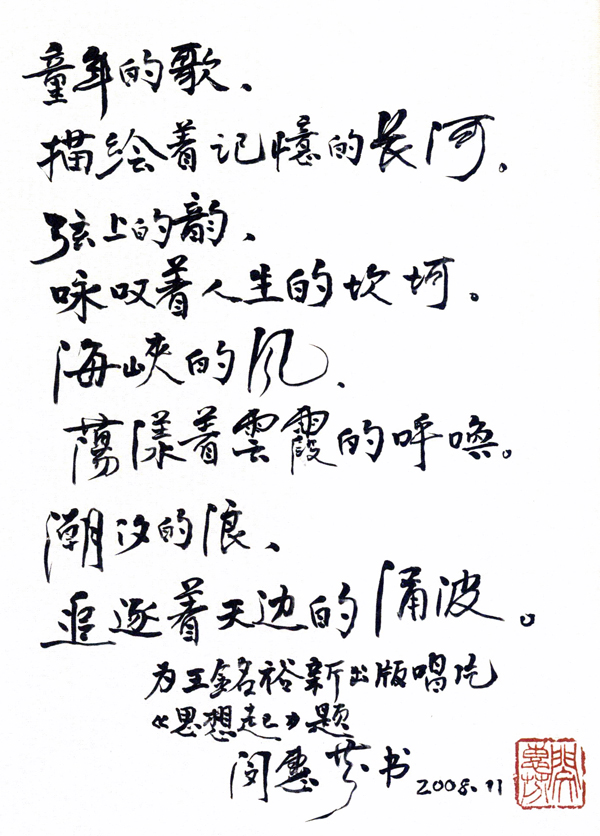 童年的歌、
描绘着记憶的长河.
弦上的韵、
咏叹着人生的坎坷。
海峡的风.
蕩漾着雲霞的呼喚。
潮汐的浪、
追逐着天边的涌波。
为王銘裕新出版唱片
《思想起》题
闵惠芬书 2008.11
闵惠芬